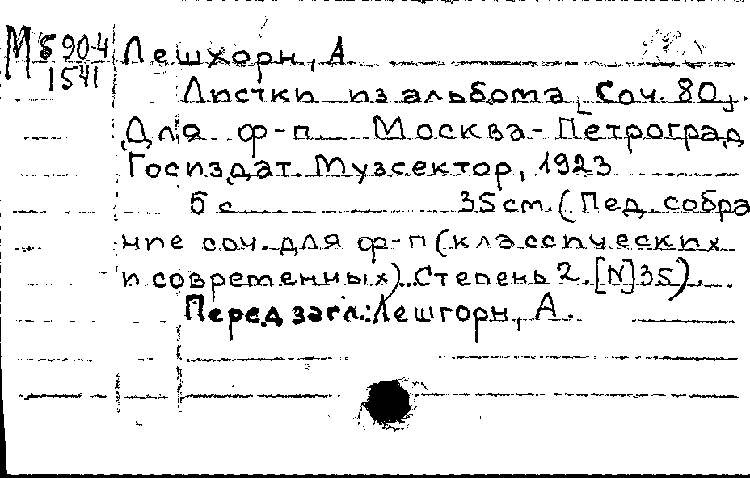 М 590-4 Лешхорн, А
1541
Листки из альбома [Соч. 80].
Для ф-п Москва-Петроград
Госиздат. Музсектор, 1923
5 с 35 см. (Пед. собра
ние соч. для ф-п (классических
и современных). Степень 2. [N] 35).
Перед загл.: Лешгорн, А.